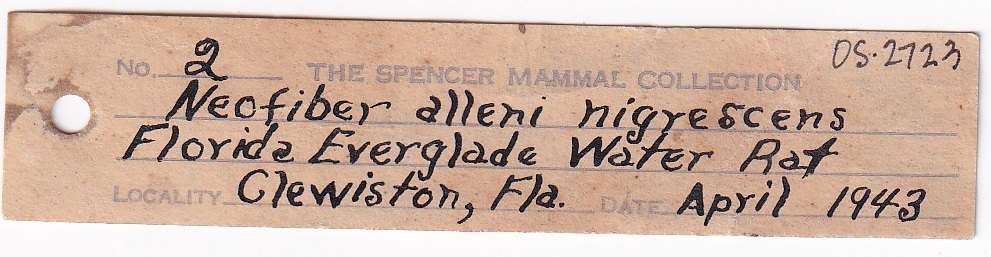 OS-2723
No. 2 THE SPENCER MAMMAL COLLECTION
Neofiber alleni nigrescens
Florida Everglade Water Rat
LOCALITY Clewiston, Fla. DATE April 1943